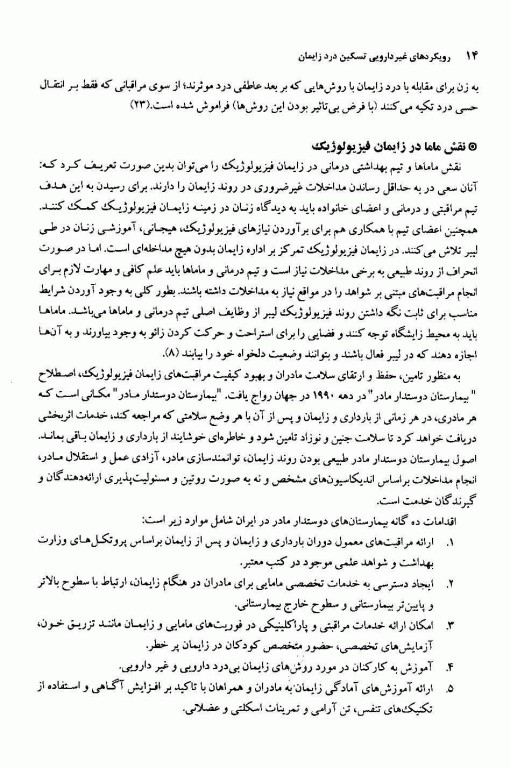 ۱۴ رویکردهای غیردارویی تسکین درد زایمان
به زن برای مقابله با درد زایمان با روش‌هایی که بر بعد عاطفی درد موثرند؛ از سوی مراقبانی که فقط بر انتقال
حسی درد تکیه می‌کنند (با فرض بی‌تاثیر بودن این روش‌ها) فراموش شده است.(۲۳)
نقش ماما در زایمان فیزیولوژیک
نقش ماماها و تیم بهداشتی درمانی در زایمان فیزیولوژیک را می‌توان بدین صورت تعریف کرد که:
آنان سعی در به حداقل رساندن مداخلات غیرضروری در روند زایمان را دارند. برای رسیدن به این هدف
تیم مراقبتی و درمانی و اعضای خانواده باید به دیدگاه زنان در زمینه زایمان فیزیولوژیک کمک کنند.
همچنین اعضای تیم با همکاری هم برای برآوردن نیازهای فیزیولوژیک، هیجانی، آموزشی زنان در طی
لیبر تلاش می‌کنند. در زایمان فیزیولوژیک تمرکز بر اداره زایمان بدون هیچ مداخله‌ای است. اما در صورت
انحراف از روند طبیعی به برخی مداخلات نیاز است و تیم درمانی و ماماها باید علم کافی و مهارت لازم برای
انجام مراقبت‌های مبتنی بر شواهد را در مواقع نیاز به مداخلات داشته باشند. بطور کلی به وجود آوردن شرایط
مناسب برای ثابت نگه داشتن روند فیزیولوژیک لیبر از وظایف اصلی تیم درمانی و ماماها می‌باشد. ماماها
باید به محیط زایشگاه توجه کنند و فضایی را برای استراحت و حرکت کردن زائو به وجود بیاورند و به آن‌ها
اجازه دهند که در لیبر فعال باشند و بتوانند وضعیت دلخواه خود را بیابند (۸).
به منظور تامین، حفظ و ارتقای سلامت مادران و بهبود کیفیت مراقبت‌های زایمان فیزیولوژیک، اصطلاح
"بیمارستان دوستدار مادر" در دهه ۱۹۹۰ در جهان رواج یافت. "بیمارستان دوستدار مادر" مکانی است که
هر مادری، در هر زمانی از بارداری و زایمان و پس از آن با هر وضع سلامتی که مراجعه کند، خدمات اثربخشی
دریافت خواهد کرد تا سلامت جنین و نوزاد تامین شود و خاطره‌ای خوشایند از بارداری و زایمان باقی بماند.
اصول بیمارستان دوستدار مادر طبیعی بودن روند زایمان، توانمندسازی مادر، آزادی عمل و استقلال مادر،
انجام مداخلات براساس اندیکاسیون‌های مشخص و نه به صورت روتین و مسئولیت‌پذیری ارائه‌دهندگان و
گیرندگان خدمت است.
اقدامات ده گانه بیمارستان‌های دوستدار مادر در ایران شامل موارد زیر است:
۱. ارائه مراقبت‌های معمول دوران بارداری و زایمان و پس از زایمان براساس پروتکل‌های وزارت
بهداشت و شواهد علمی موجود در کتب معتبر.
۲. ایجاد دسترسی به خدمات تخصصی مامایی برای مادران در هنگام زایمان، ارتباط با سطوح بالاتر
و پایین‌تر بیمارستانی و سطوح خارج بیمارستانی.
۳. امکان ارائه خدمات مراقبتی و پاراکلینیکی در فوریت‌های مامایی و زایمان مانند تزریق خون،
آزمایش‌های تخصصی، حضور متخصص کودکان در زایمان پر خطر.
۴. آموزش به کارکنان در مورد روش‌های زایمان بی‌درد دارویی و غیر دارویی.
۵. ارائه آموزش‌های آمادگی زایمان به مادران و همراهان با تاکید بر افزایش آگاهی و استفاده از
تکنیک‌های تنفس، تن آرامی و تمرینات اسکلتی و عضلانی.